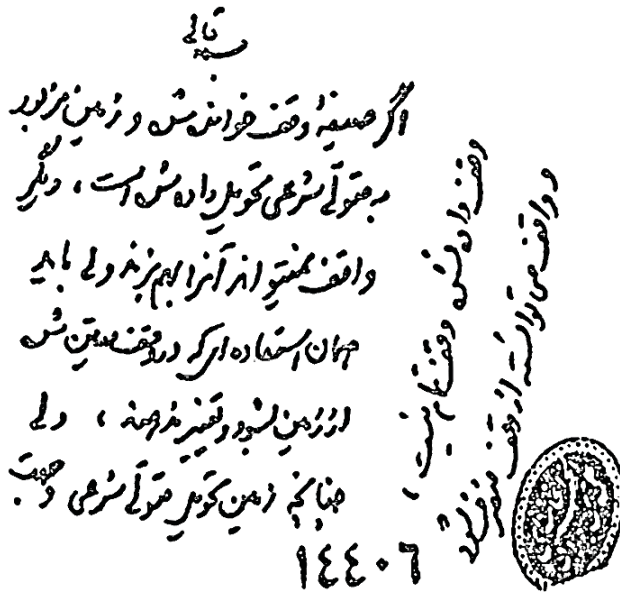 بسمه تعالی
اگر صیغهٔ وقف خوانده شده و زمین مزبور
به متولّی شرعی تحویل داده شده است، دیگر
واقف نمیتواند آنرا بهم بزند ولی باید
همان استفاده ای که در وقف معین شده
از زمین بشود و تغییر ندهند، ولی
چنانچه زمین تحویل متولّی شرعی و جهت
وقف داده نشده وقف تمام نیست،
و واقف می توانسته از وقف منصرف شود
١٤٤٠٦